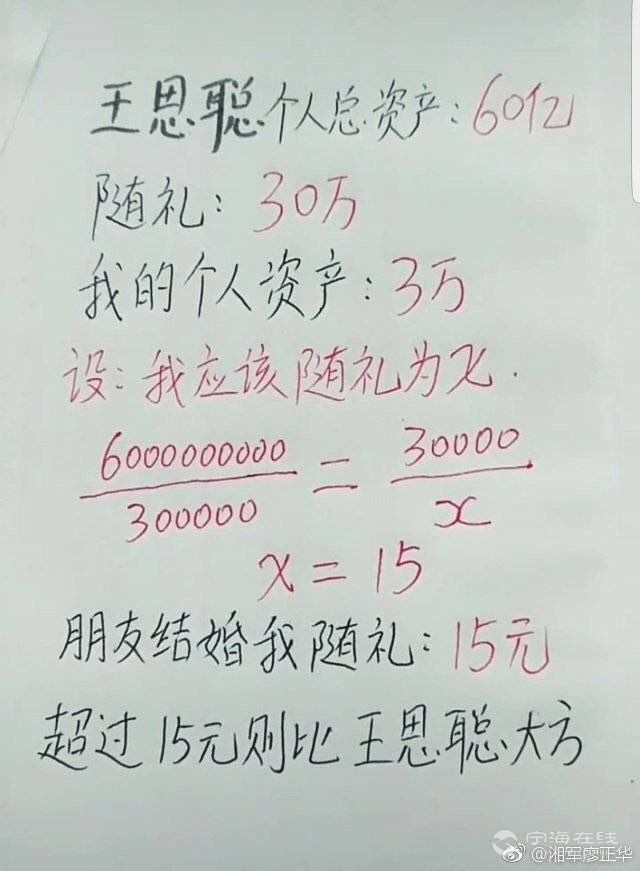 王思聪个人总资产:60亿
随礼:30万
我的个人资产:3万
设:我应该随礼为x.
6000000000/300000 = 30000/x
x=15
朋友结婚我随礼:15元
超过15元则比王思聪大方
宁海在线
@湘军廖正华